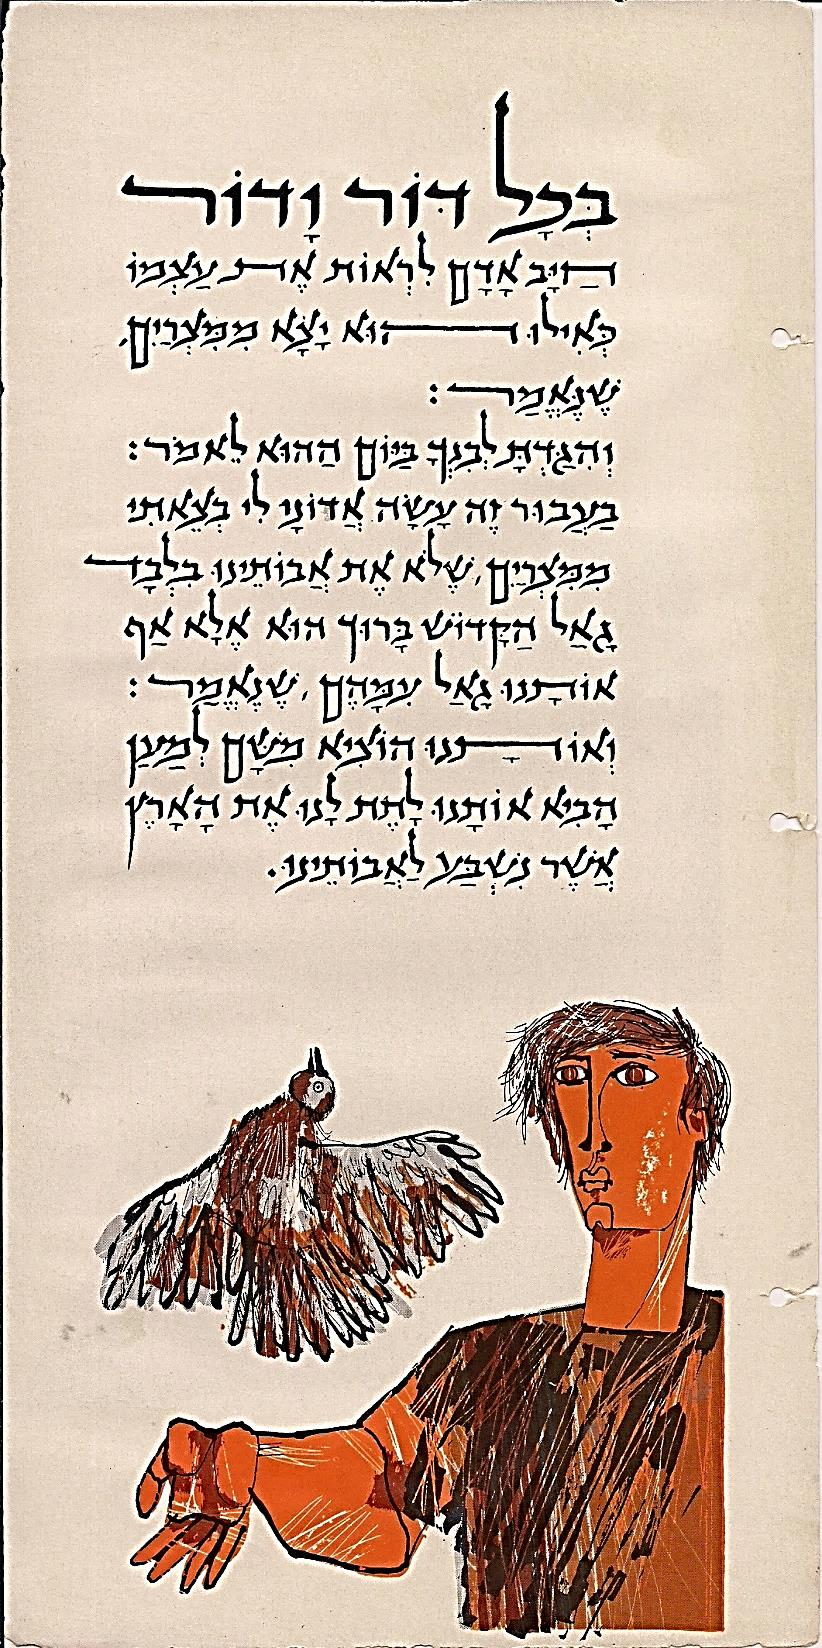 בְּכָל דּוֹר וָדוֹר
חַיָּב אָדָם לִרְאוֹת אֶת עַצְמוֹ
כְּאִילוּ הוּא יָצָא מִמִּצְרַיִם,
שֶׁנֶּאֱמַר:
וְהִגַּדְתָּ לְבִנְךָ בַּיּוֹם הַהוּא לֵאמֹר:
בַּעֲבוּר זֶה עָשָׂה אֲדוֹנָי לִי בְּצֵאתִי
מִמִּצְרַיִם, שֶׁלֹּא אֶת אֲבוֹתֵינוּ בִּלְבָד
גָּאַל הַקָּדוֹשׁ בָּרוּךְ הוּא אֶלָּא אַף
אוֹתָנוּ גָּאַל עִמָּהֶם, שֶׁנֶּאֱמַר:
וְאוֹתָנוּ הוֹצִיא מִשָּׁם לְמַעַן
הָבִיא אוֹתָנוּ לָתֶת לָנוּ אֶת הָאָרֶץ
אֲשֶׁר נִשְׁבַּע לַאֲבוֹתֵינוּ.